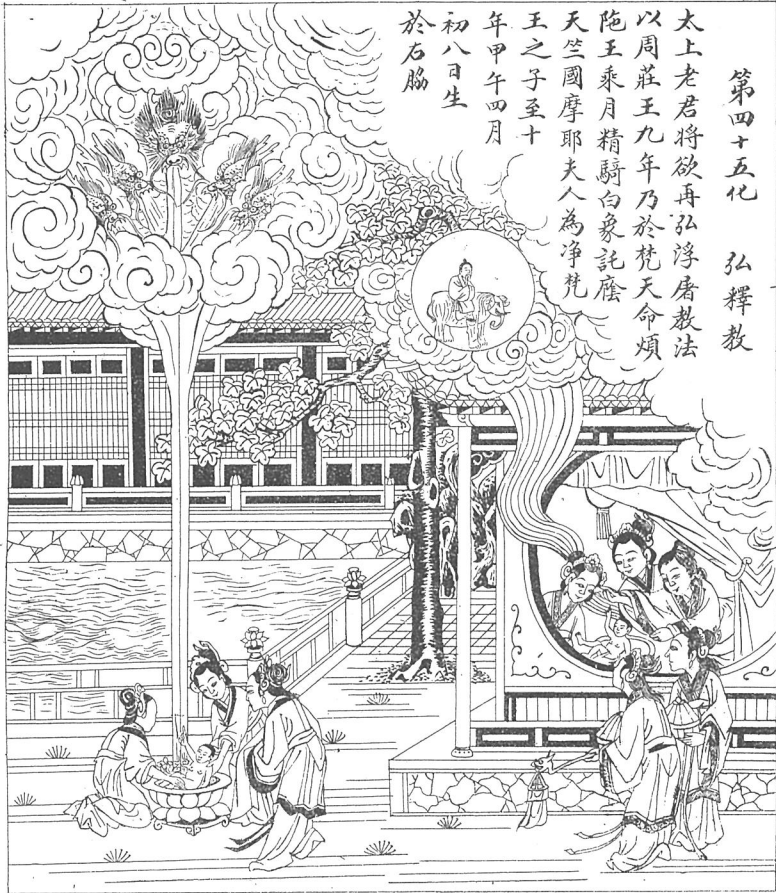 第四十五化　弘釋教
太上老君將欲再弘浮屠教法
以周莊王九年乃於梵天命煩
陁王乘月精騎白象託廕
天竺國摩耶夫人為净梵
王之子至十
年甲午四月
初八日生
於右脇